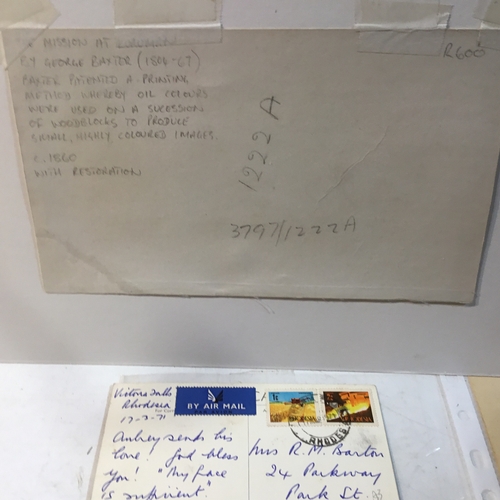 MISSION AT
R600
BY GEORGE BAXTER (1804-67)
BAXTER PATENTED A PRINTING
METHOD WHEREBY OIL COLOURS
WERE USED ON A SUCESSION
OF WOODBLOCKS TO PRODUCE
SMALL, HIGHLY COLOURED IMAGES.
C. 1860
WITH RESTORATION
1222 A
3797/1222A
Victoria Falls
Rhodesia
17-3-71
BY AIR MAIL
1c
Aubrey sends his
love! God bless
you! "My grace
is sufficient"
Mrs R. M. Barton
24 Parkway
Park St.